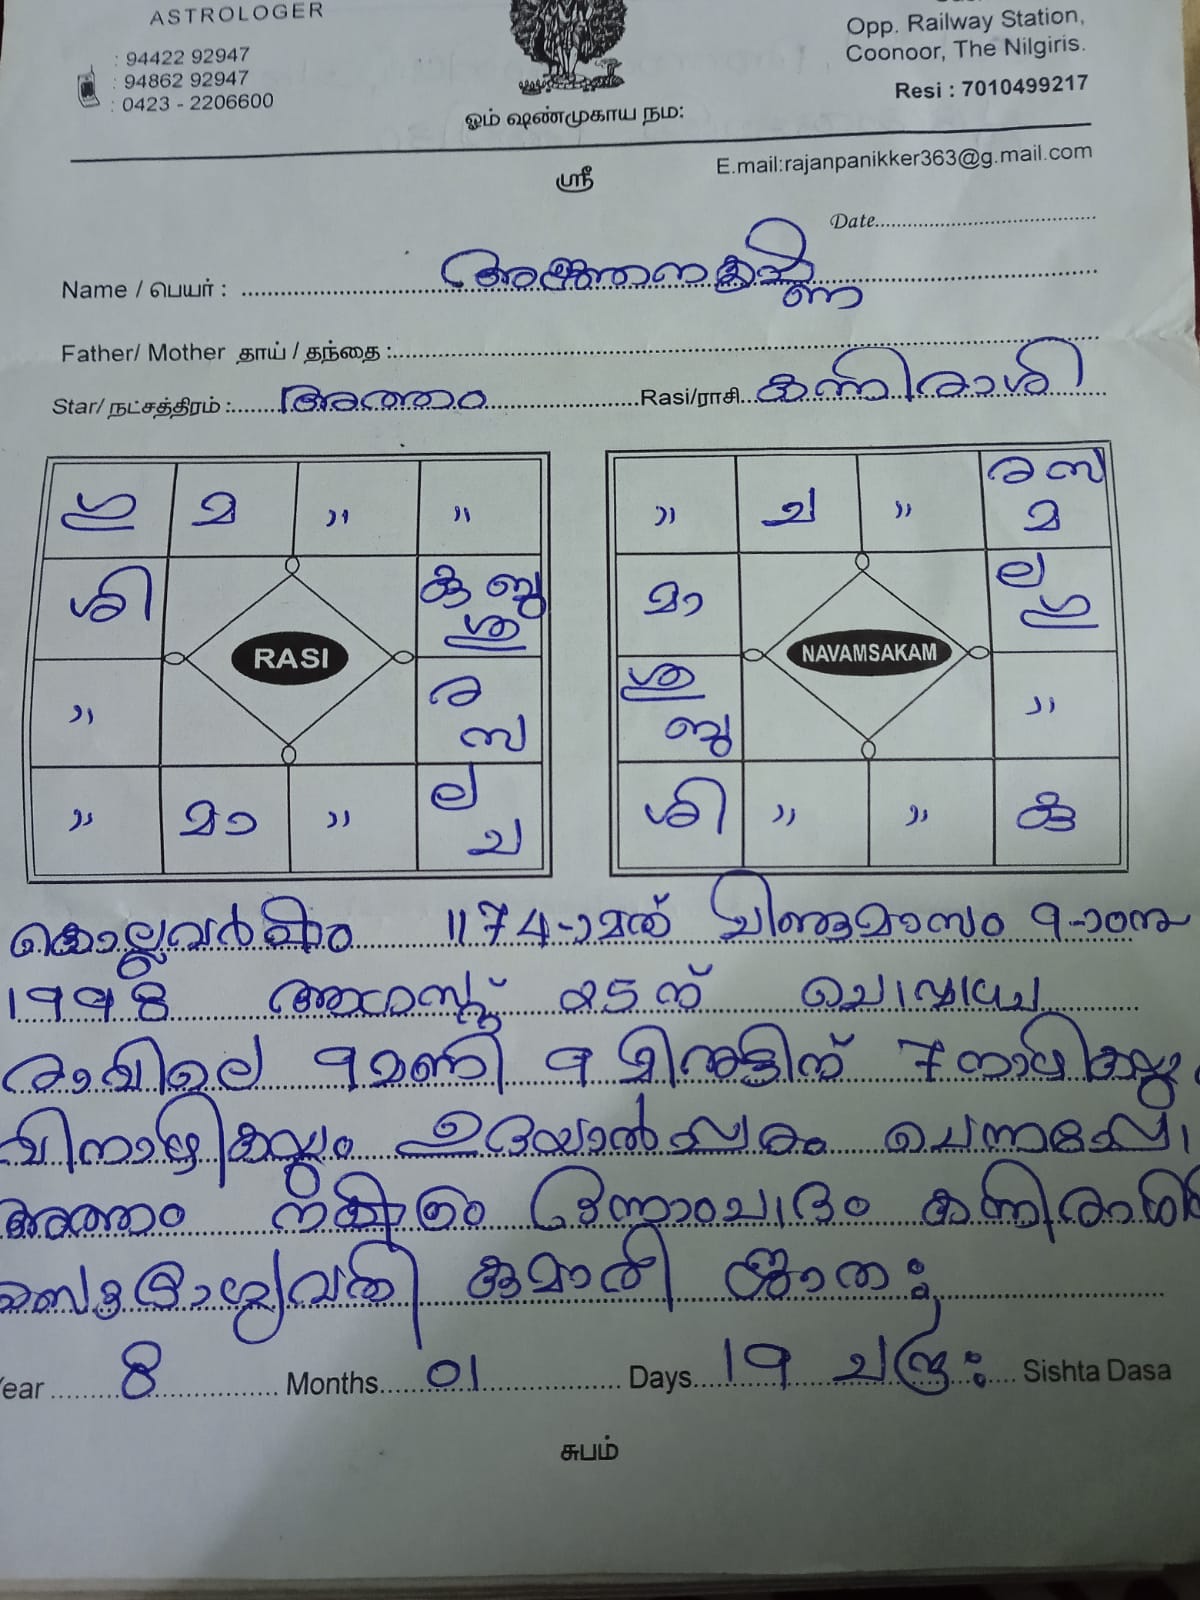 ASTROLOGER
: 94422 92947
: 94862 92947
: 0423 - 2206600
Opp. Railway Station,
Coonoor, The Nilgiris.
Resi : 7010499217
ஓம் ஷண்முகாய நம:
E.mail:rajanpanikker363@g.mail.com
ஸ்ரீ
Date
Name / பெயர் :
Father/ Mother தாய் / தந்தை :
Star/ நட்சத்திரம் : അത്തം Rasi/ராசி കന്നിരാശി
ഗു മ " "
ശി കു ബു ശു
" RASI ര സ
" മാ " ല ച
" ച " ര സ മ
മാ ല ഗു
ശു ബു NAVAMSAKAM "
ശി " " കു
കൊല്ലവർഷം 1174-ാമത് ചിങ്ങമാസം 9-ാംനു
1998 ആഗസ്റ്റ് 25ന് ചൊവ്വാഴ്ച
രാവിലെ 9മണി 9 മിനുട്ടിന് 7നാഴികയും
വിനാഴികയും ഉദയാൽപ്പരം ചെന്നപ്പോൾ
അത്തം നക്ഷത്രം ഒന്നാംപാദം കന്നിരാശി
കുമാരി ജാത:
Year 8 Months 01 Days 19 ചന്ദ്ര: Sishta Dasa
சுபம்